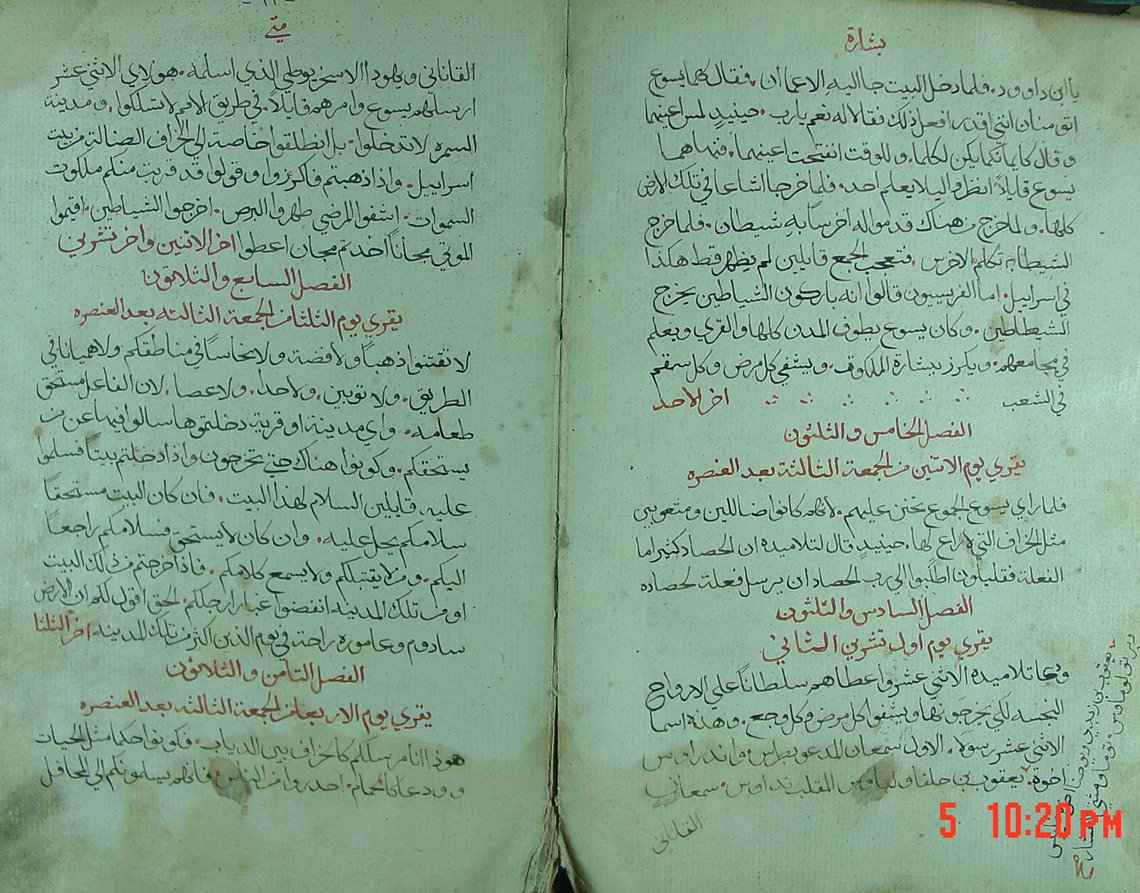 بشارة
يا ابن داوود. فلما دخل البيت جا اليه الاعما ان. فقال لهما يسوع
اتومنان انني اقدر افعل ذلك فقالا له نعم يا رب. حينيذٍ لمس اعينهما
وقال كايمانكما يكن لكما. وللوقت انفتحت اعينهما. فنهاهما
يسوع قايلاً انظروا ليلا يعلم احد. فلما خرجا اشاعا في تلك الارض
كلها. ولما خرج من هناك قدموا له اخرسا به شيطان. فلما خرج
الشيطان تكلم الاخرس. فتعجب الجمع قايلين لم يظهر قط هكذا
في اسراييل. اما الفريسيون قالوا انه باركون الشياطين يخرج
الشيطاطين. وكان يسوع يطوف المدن كلها والقري ويعلم
في مجامعهم. ويكرز ببشارة الملكوت. ويشفي كل مرض وكل سقم
في الشعب اخر الاحد
الفصل الخامس والثلثون
يقري يوم الاتنين من الجمعة الثالثة بعد العنصره
فلما راي يسوع الجموع تحنن عليهم. لانهم كانوا ضاللين ومتعوبين
مثل الخراف التي لا راع لها. حينيذٍ قال لتلاميذه ان الحصاد كثير اما
الفعلة فقليلون اطلبوا الي رب الحصاد ان يرسل فعلة لحصاده
الفصل السادس والثلثون
يقري يوم اول تشرين الثاني
ودعا تلاميذه الاثني عشر واعطاهم سلطاناً علي الارواح
النجسه لكي يخرجونها ويشفوا كل مرض وكل وجع. وهذه اسما
الاثني عشر رسولا. الاول سمعان المدعو بطرس. واندراوس
اخوة. يعقوب بن حلفا ولباوس الملقب تداوس. سمعان
القاناني
يعقوب بن زبدي ويوحنا اخوه
برتولوماوس. توما ومتي العشار
متي
القاناني ويهودا الاسخريوطي الذي اسلمه. هولاي الاثني عشر
ارسلهم يسوع وامرهم قايلاً. في طريق الامم لا تسلكوا. ومدينة
السمره لا تدخلوا. بل انطلقوا خاصة الي الخراف الضالة من بيت
اسراييل. واذا ذهبتم فاكرزوا وقولوا قد قربت منكم ملكوت
السموات. اشفوا المرضي طهروا البرص. اخرجوا الشياطين. اقيموا
الموتي مجاناً اخدتم مجان اعطوا اخر الاتنين واخر تشرين
الفصل السابع والثلاثون
يقري يوم الثلثا من الجمعة الثالثه بعد العنصره
لا تقتنوا ذهباً ولا فضة ولا نحاساً في مناطقكم ولا هميانا في
الطريق. ولا توبين. ولا حدا. ولا عصا. لان الفاعل مستحق
طعامه. واي مدينة او قرية دخلتموها سالوا فيها عن من
يستحقكم. وكونوا هناك حتي تخرجون واذا دخلتم بيتاً فسلموا
عليه. قايلين السلام لهذا البيت. فان كان البيت مستحقاً
سلامكم يحل عليه. وان كان لا يستحق فسلامكم راجعاً
اليكم. ومن لا يقبلكم ولا يسمع كلامكم. فاذا خرجتم من ذلك البيت
او من تلك المدينه انفضوا غبار ارجلكم. الحق اقول لكم ان لارض
سادوم وعاموره راحة في يوم الدين اكثر من تلك المدينه اخر الثلثا
الفصل الثامن والثلاثون
يقري يوم الاربعا من الجمعة الثالثه بعد العنصره
هوذا انا مرسلكم كالخراف بين الدياب. فكونوا حكما مثل الحيات
وودعا كالحمام. احدروا من الناس. فانهم يسلمونكم الي المحافل
5 10:20 PM